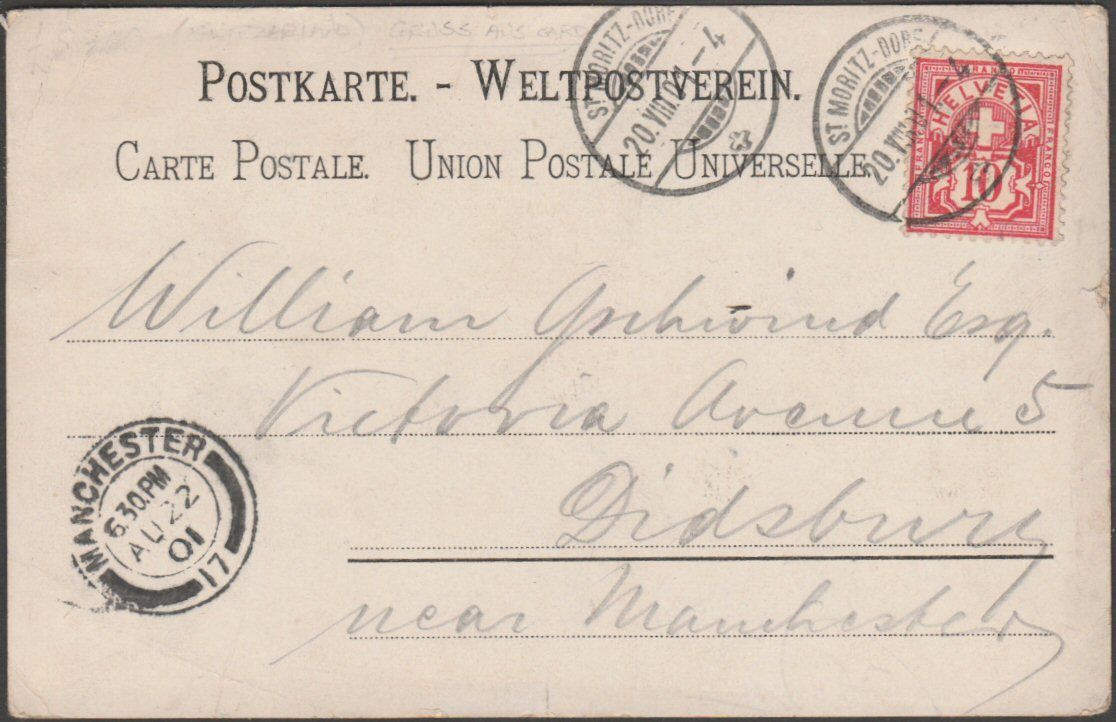 (SWITZERLAND) GRUSS AUS
POSTKARTE. - WELTPOSTVEREIN.
CARTE POSTALE. UNION POSTALE UNIVERSELLE.
ST MORITZ-DORF
20.VIII.01.-4
ST MORITZ-DORF
20.VIII.01.-4
FRANCO
HELVETIA
10
William Gschwind Esq.
Victoria Avenue 5
Didsbury
near Manchester
MANCHESTER
6.30.PM
AU 22
01
17